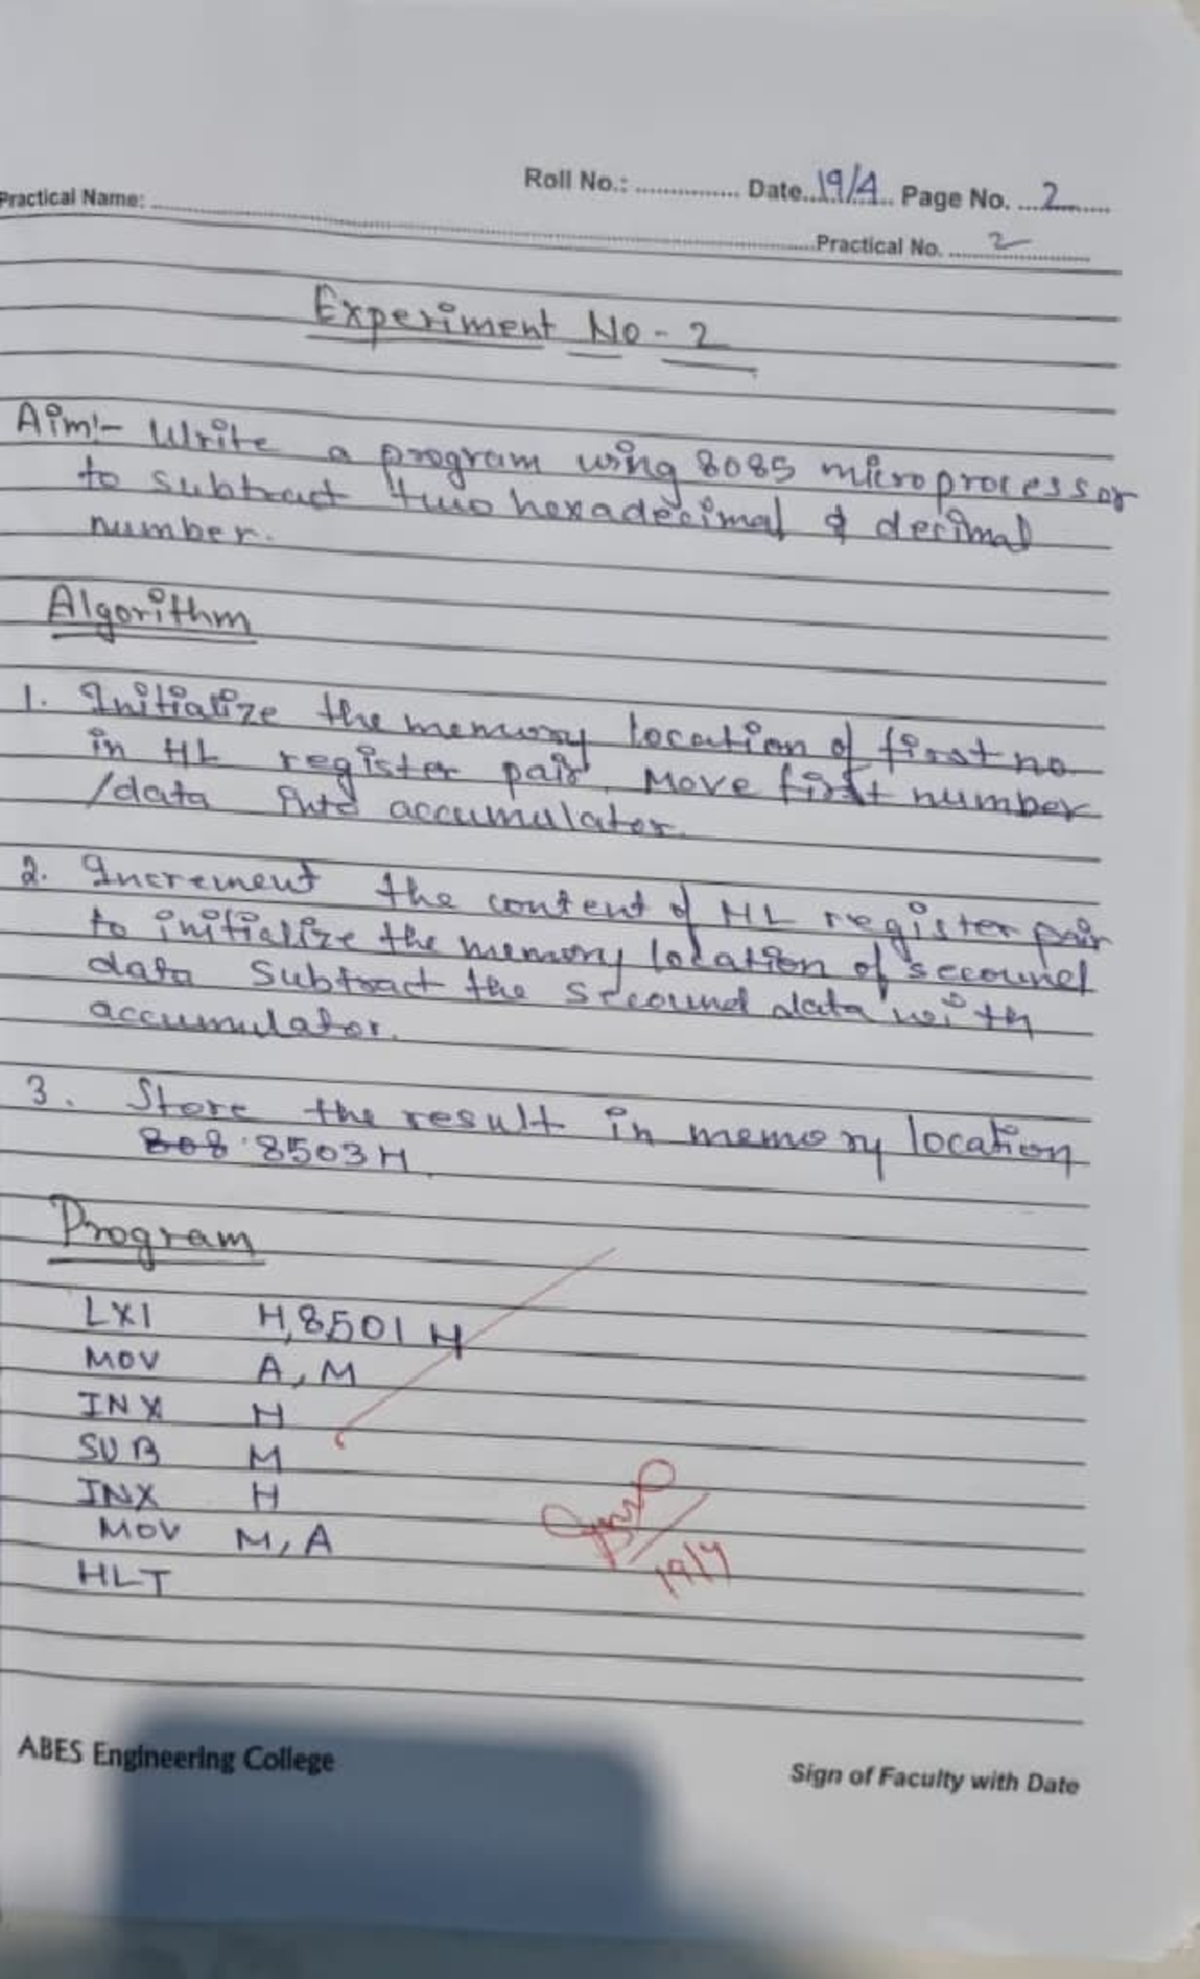 Roll No.: ............... Date..19/4.. Page No. ...2........
Practical Name: ..........................................................................................Practical No. ......2..............
Experiment No - 2
Aim:- Write a program using 8085 microprocessor
to subtract two hexadecimal & decimal
number.
Algorithm
1. Initialize the memory location of first no
in HL register pair. Move first number
/data into accumulator.
2. Increment the content of HL register pair
to initialize the memory location of secound
data subtract the secound data with
accumulator.
3. Store the result in memory location
808 8503H.
Program
LXI H,8501 H
MOV A, M
INX H
SUB M
INX H
MOV M, A
HLT
19/4
ABES Engineering College
Sign of Faculty with Date